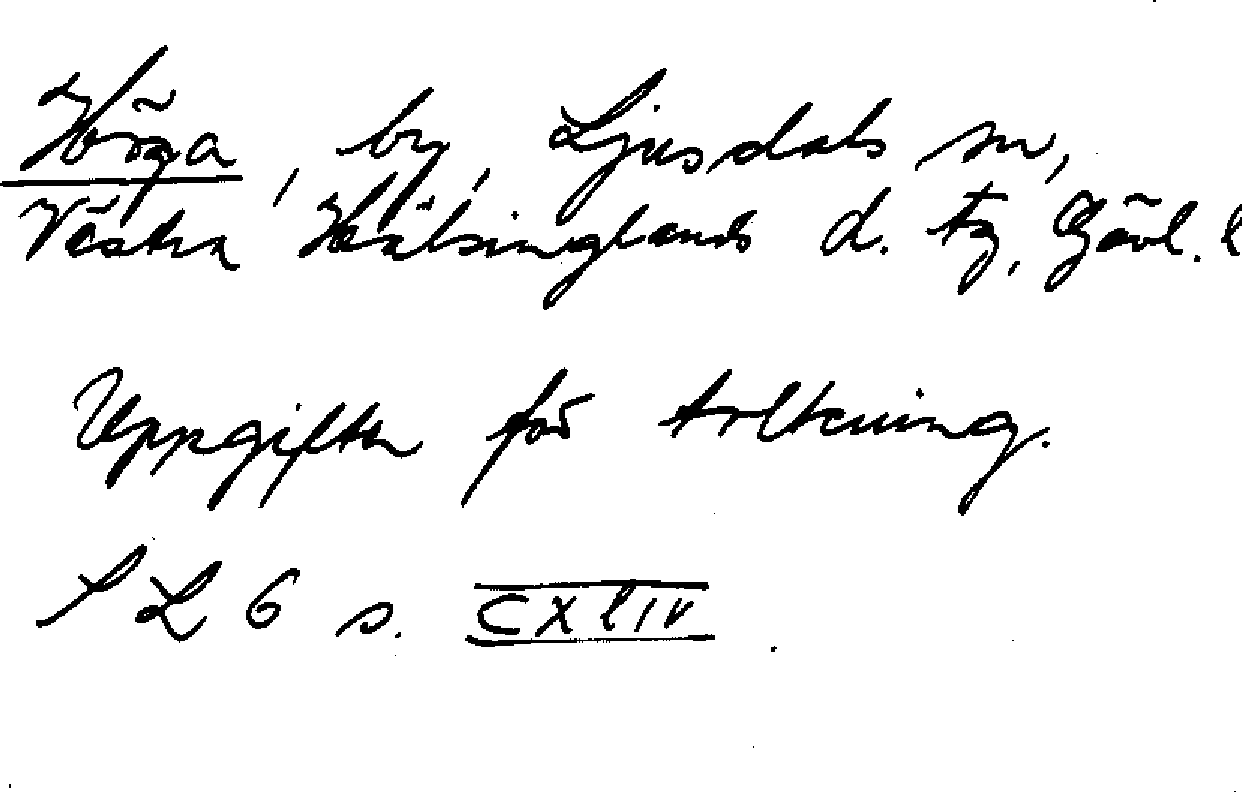 Höga, by, Ljusdals sn,
Västra Hälsinglands d. tg, Gävl. l
Uppgifter för tolkning.
SL 6 s. CXLIV.